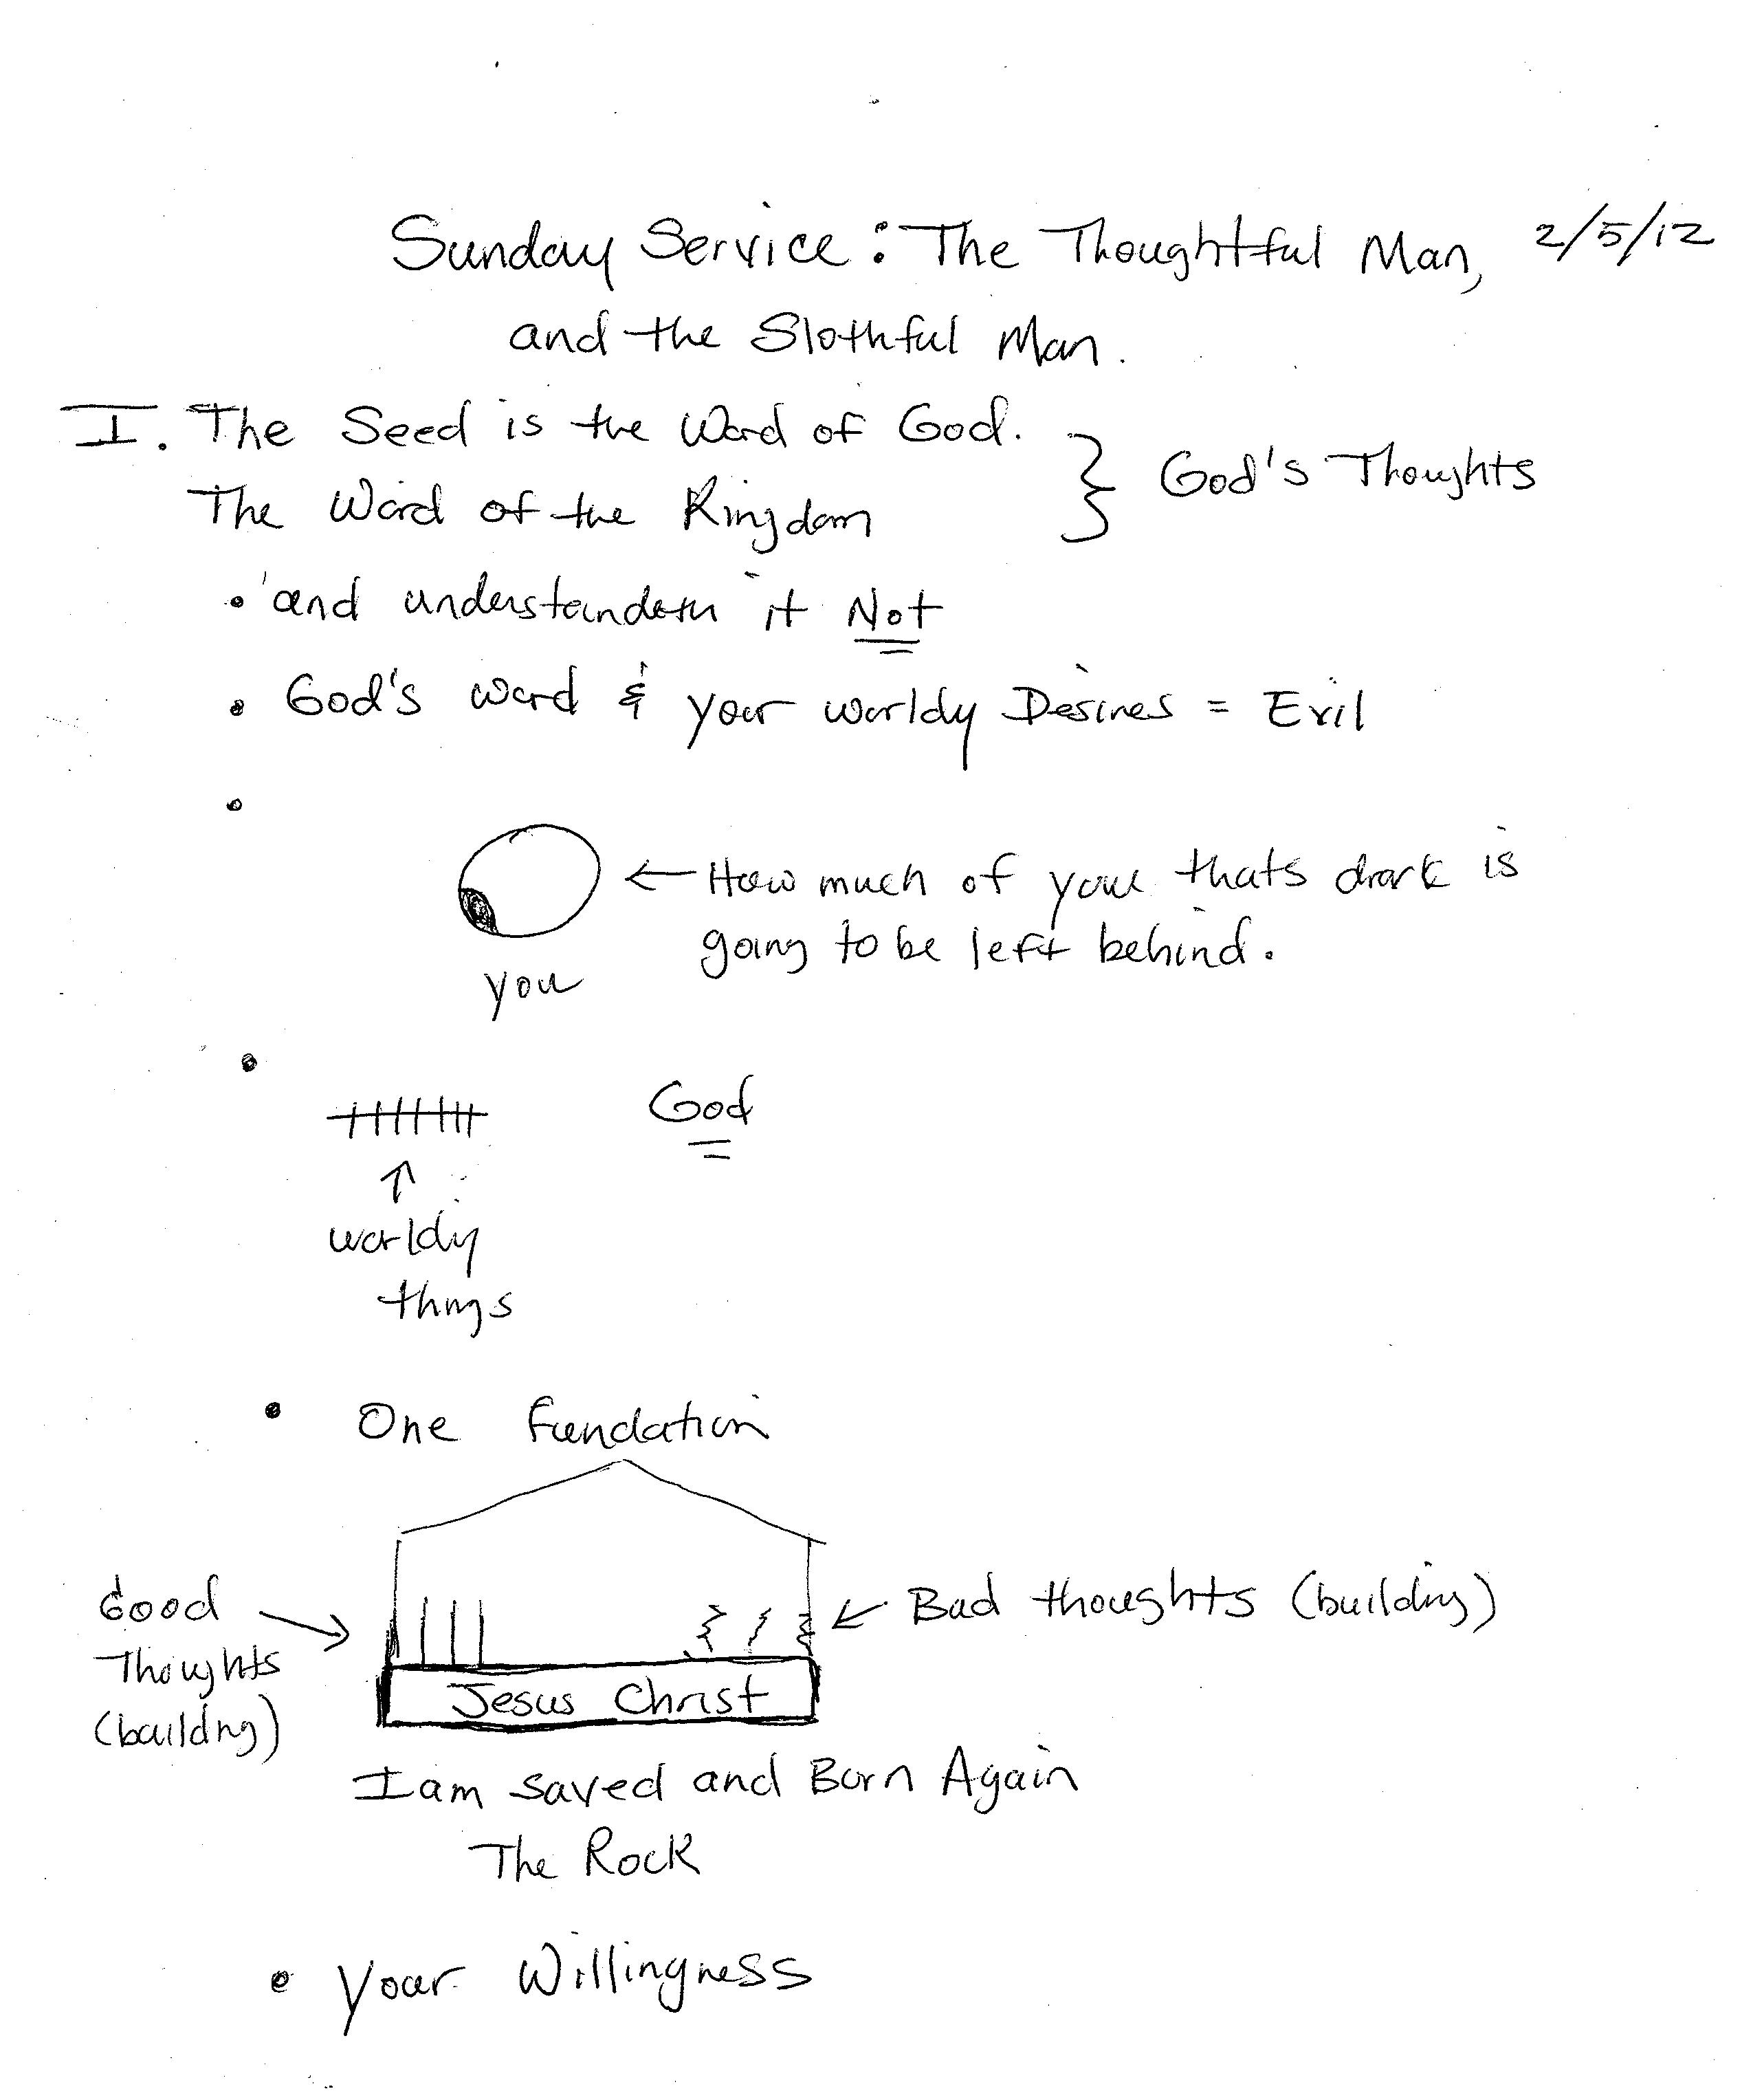 Sunday Service: The Thoughtful Man, 2/5/12
and the Slothful Man.
I. The Seed is the Word of God.
The Word of the Kingdom
} God's Thoughts
• and understandeth it Not
• God's word & your worldy Desires = Evil
•
← How much of you thats dark is
going to be left behind.
you
•
God
↑
worldy
things
• One Foundation
Good
Thoughts
(building)
← Bad thoughts (building)
Jesus Christ
I am saved and Born Again
The Rock
• Your Willingness